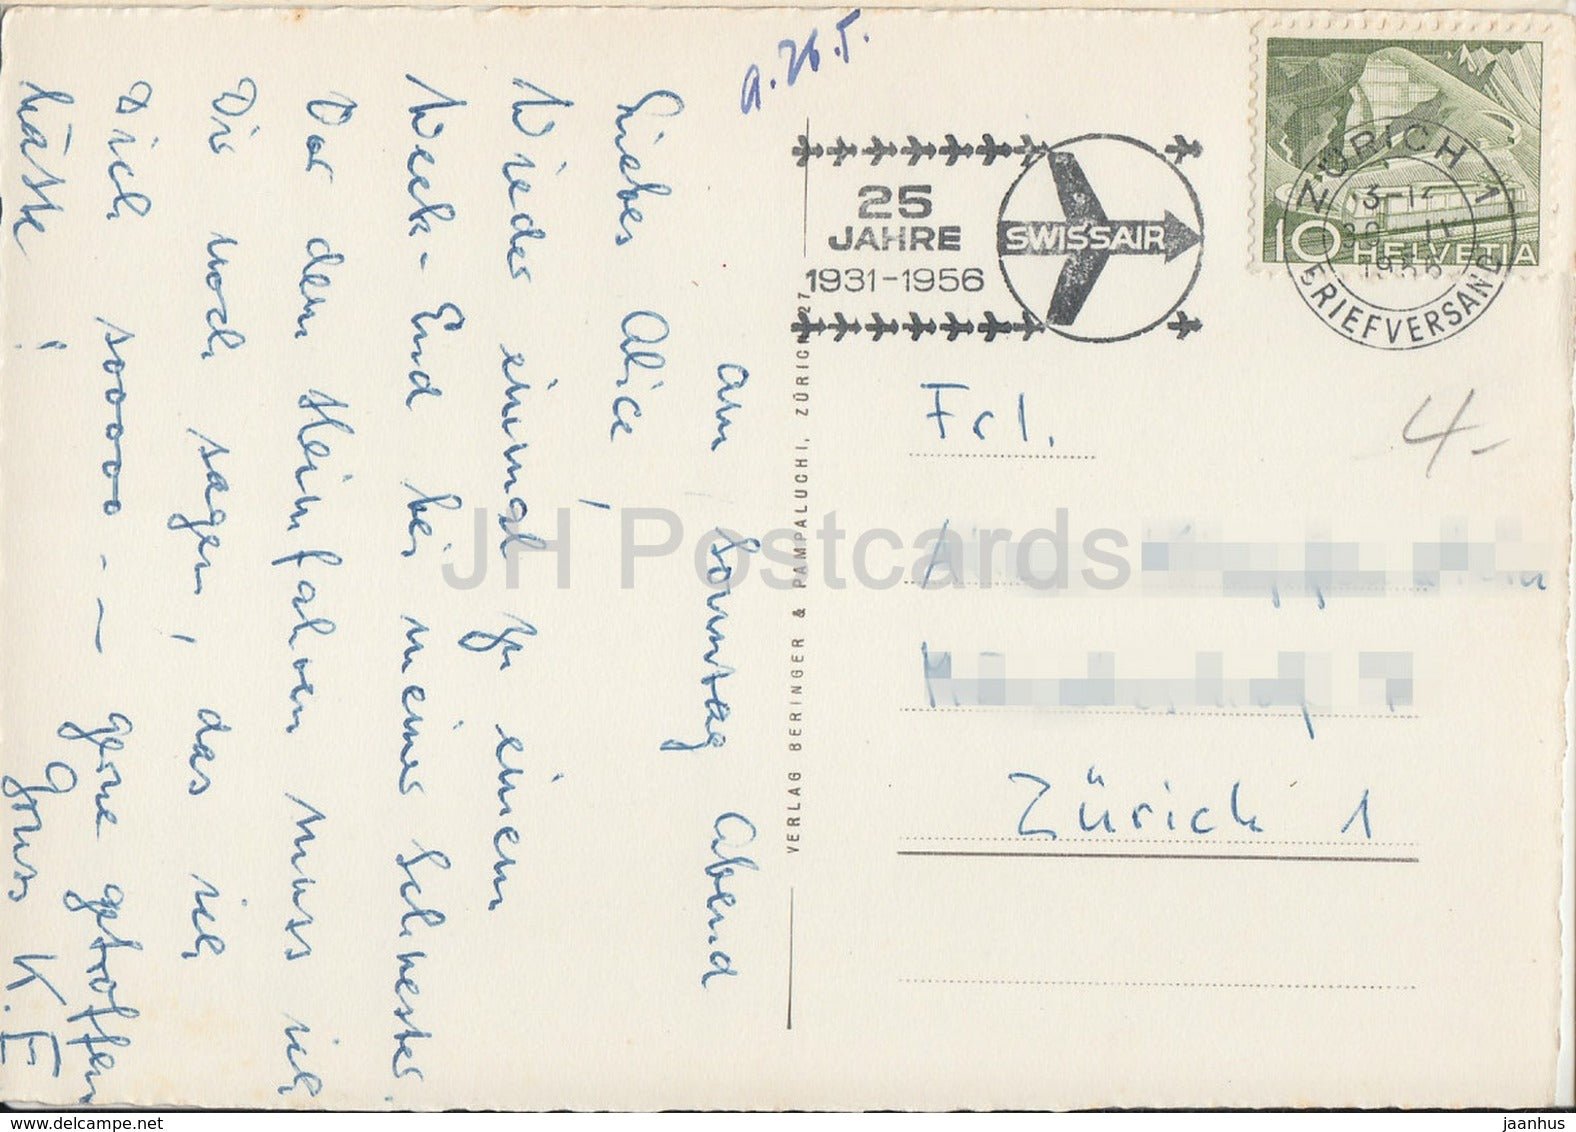 a. 26. 5.
am Sonntag Abend
Liebes Alice,
Wieder einmal zu einem
Week-End bei meiner Schwester.
Vor dem Heimfahren muss ich
Dir noch sagen, das ich
Dich soooo - - gerne getroffen
hätte! Gruss K. E
25
JAHRE
1931-1956
SWISSAIR
ZÜRICH 1
1956
BRIEFVERSAND
10 HELVETIA
VERLAG BERINGER & PAMPALUCHI, ZÜRICH 27
Frl.
Zürich 1
4-
JH Postcards
www.delcampe.net
jaanhus